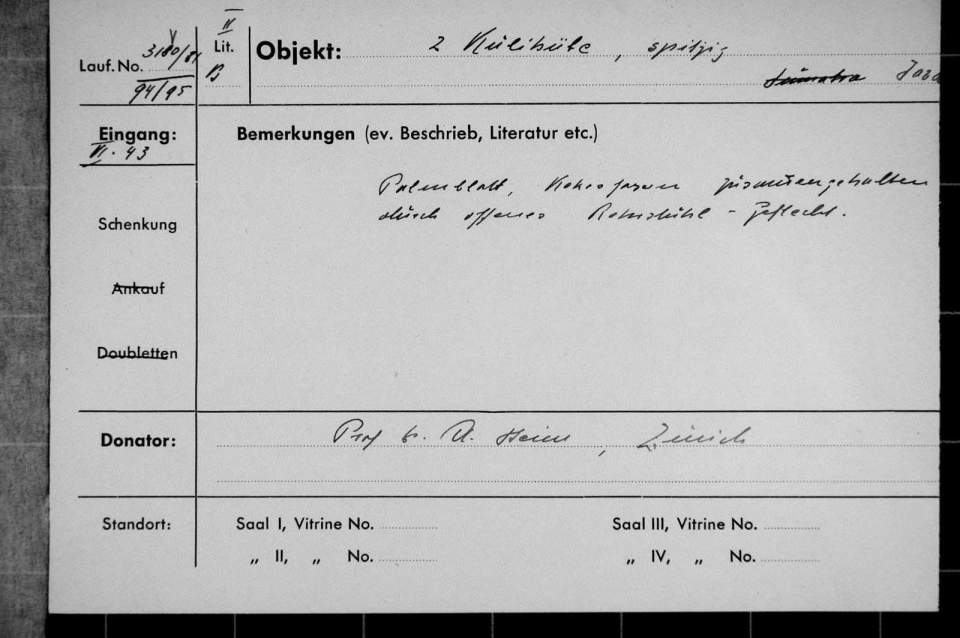 II
Lauf. No. 3180/81
94/95
Lit. B
Objekt: 2 Kulihüte, spitzig
Sumatra Java
Eingang:
VI. 43
Bemerkungen (ev. Beschrieb, Literatur etc.)
Palmblatt, Kokosfasern zusammengehalten
durch offenes Rotanstuhl-Geflecht.
Schenkung
Ankauf
Doubletten
Donator: Prof Dr. A. Heim, Zürich
Standort:
Saal I, Vitrine No. Saal III, Vitrine No.
„ II, „ No. „ IV, „ No.